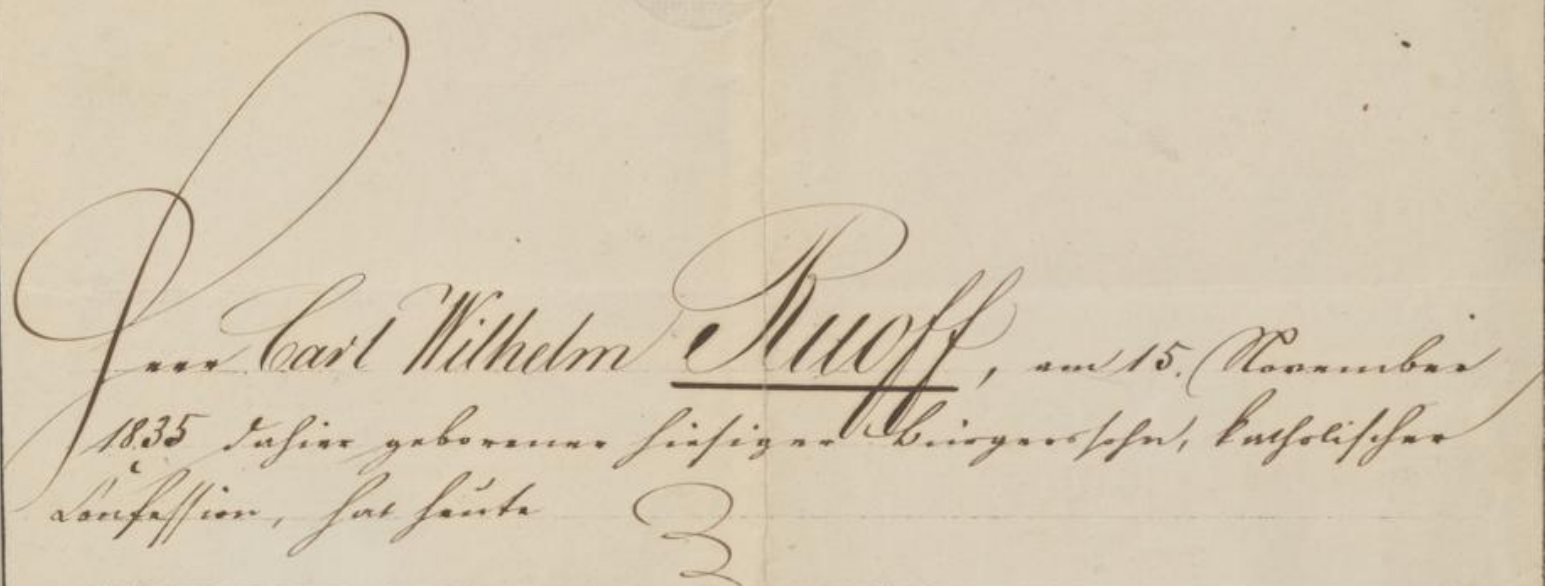 Herr Carl Wilhelm Ruoff, am 15. November
1835 dahier geborener hiesiger Bürgerssohn, katholischer
Confession, hat heute